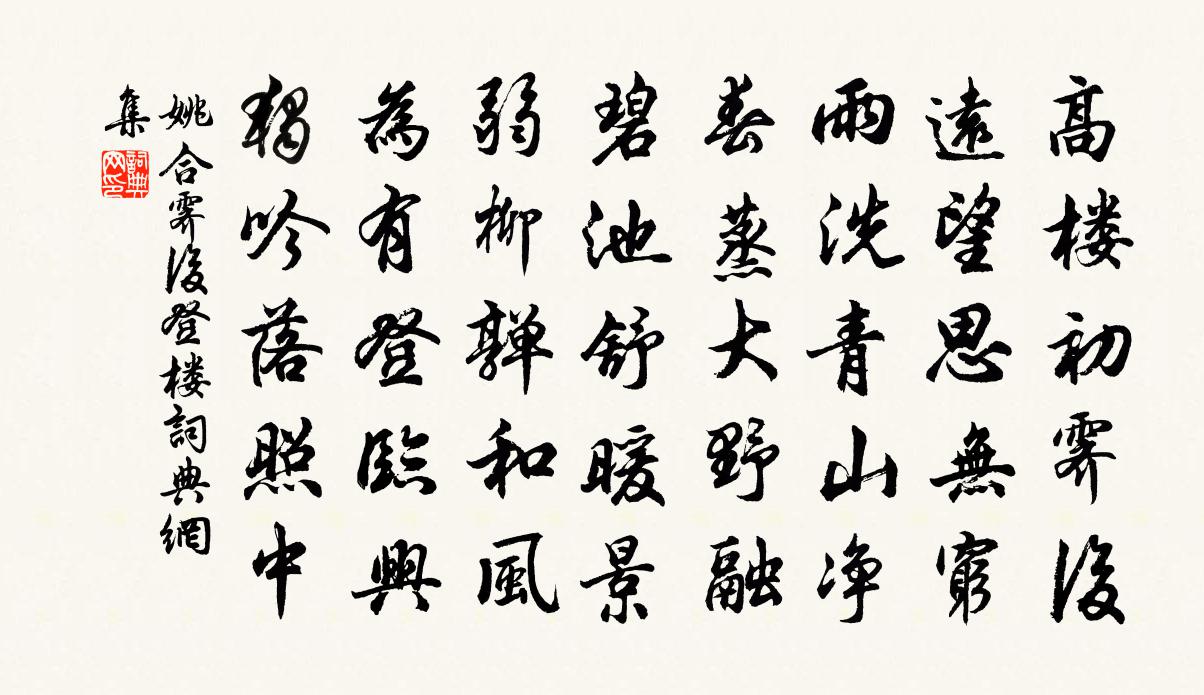 高楼初霽後
遠望思無窮
雨洗青山净
春蒸大野融
碧池舒暖景
弱柳嚲和風
為有登臨興
獨吟落照中
姚合霽後登楼詞典網
集
詞典網印